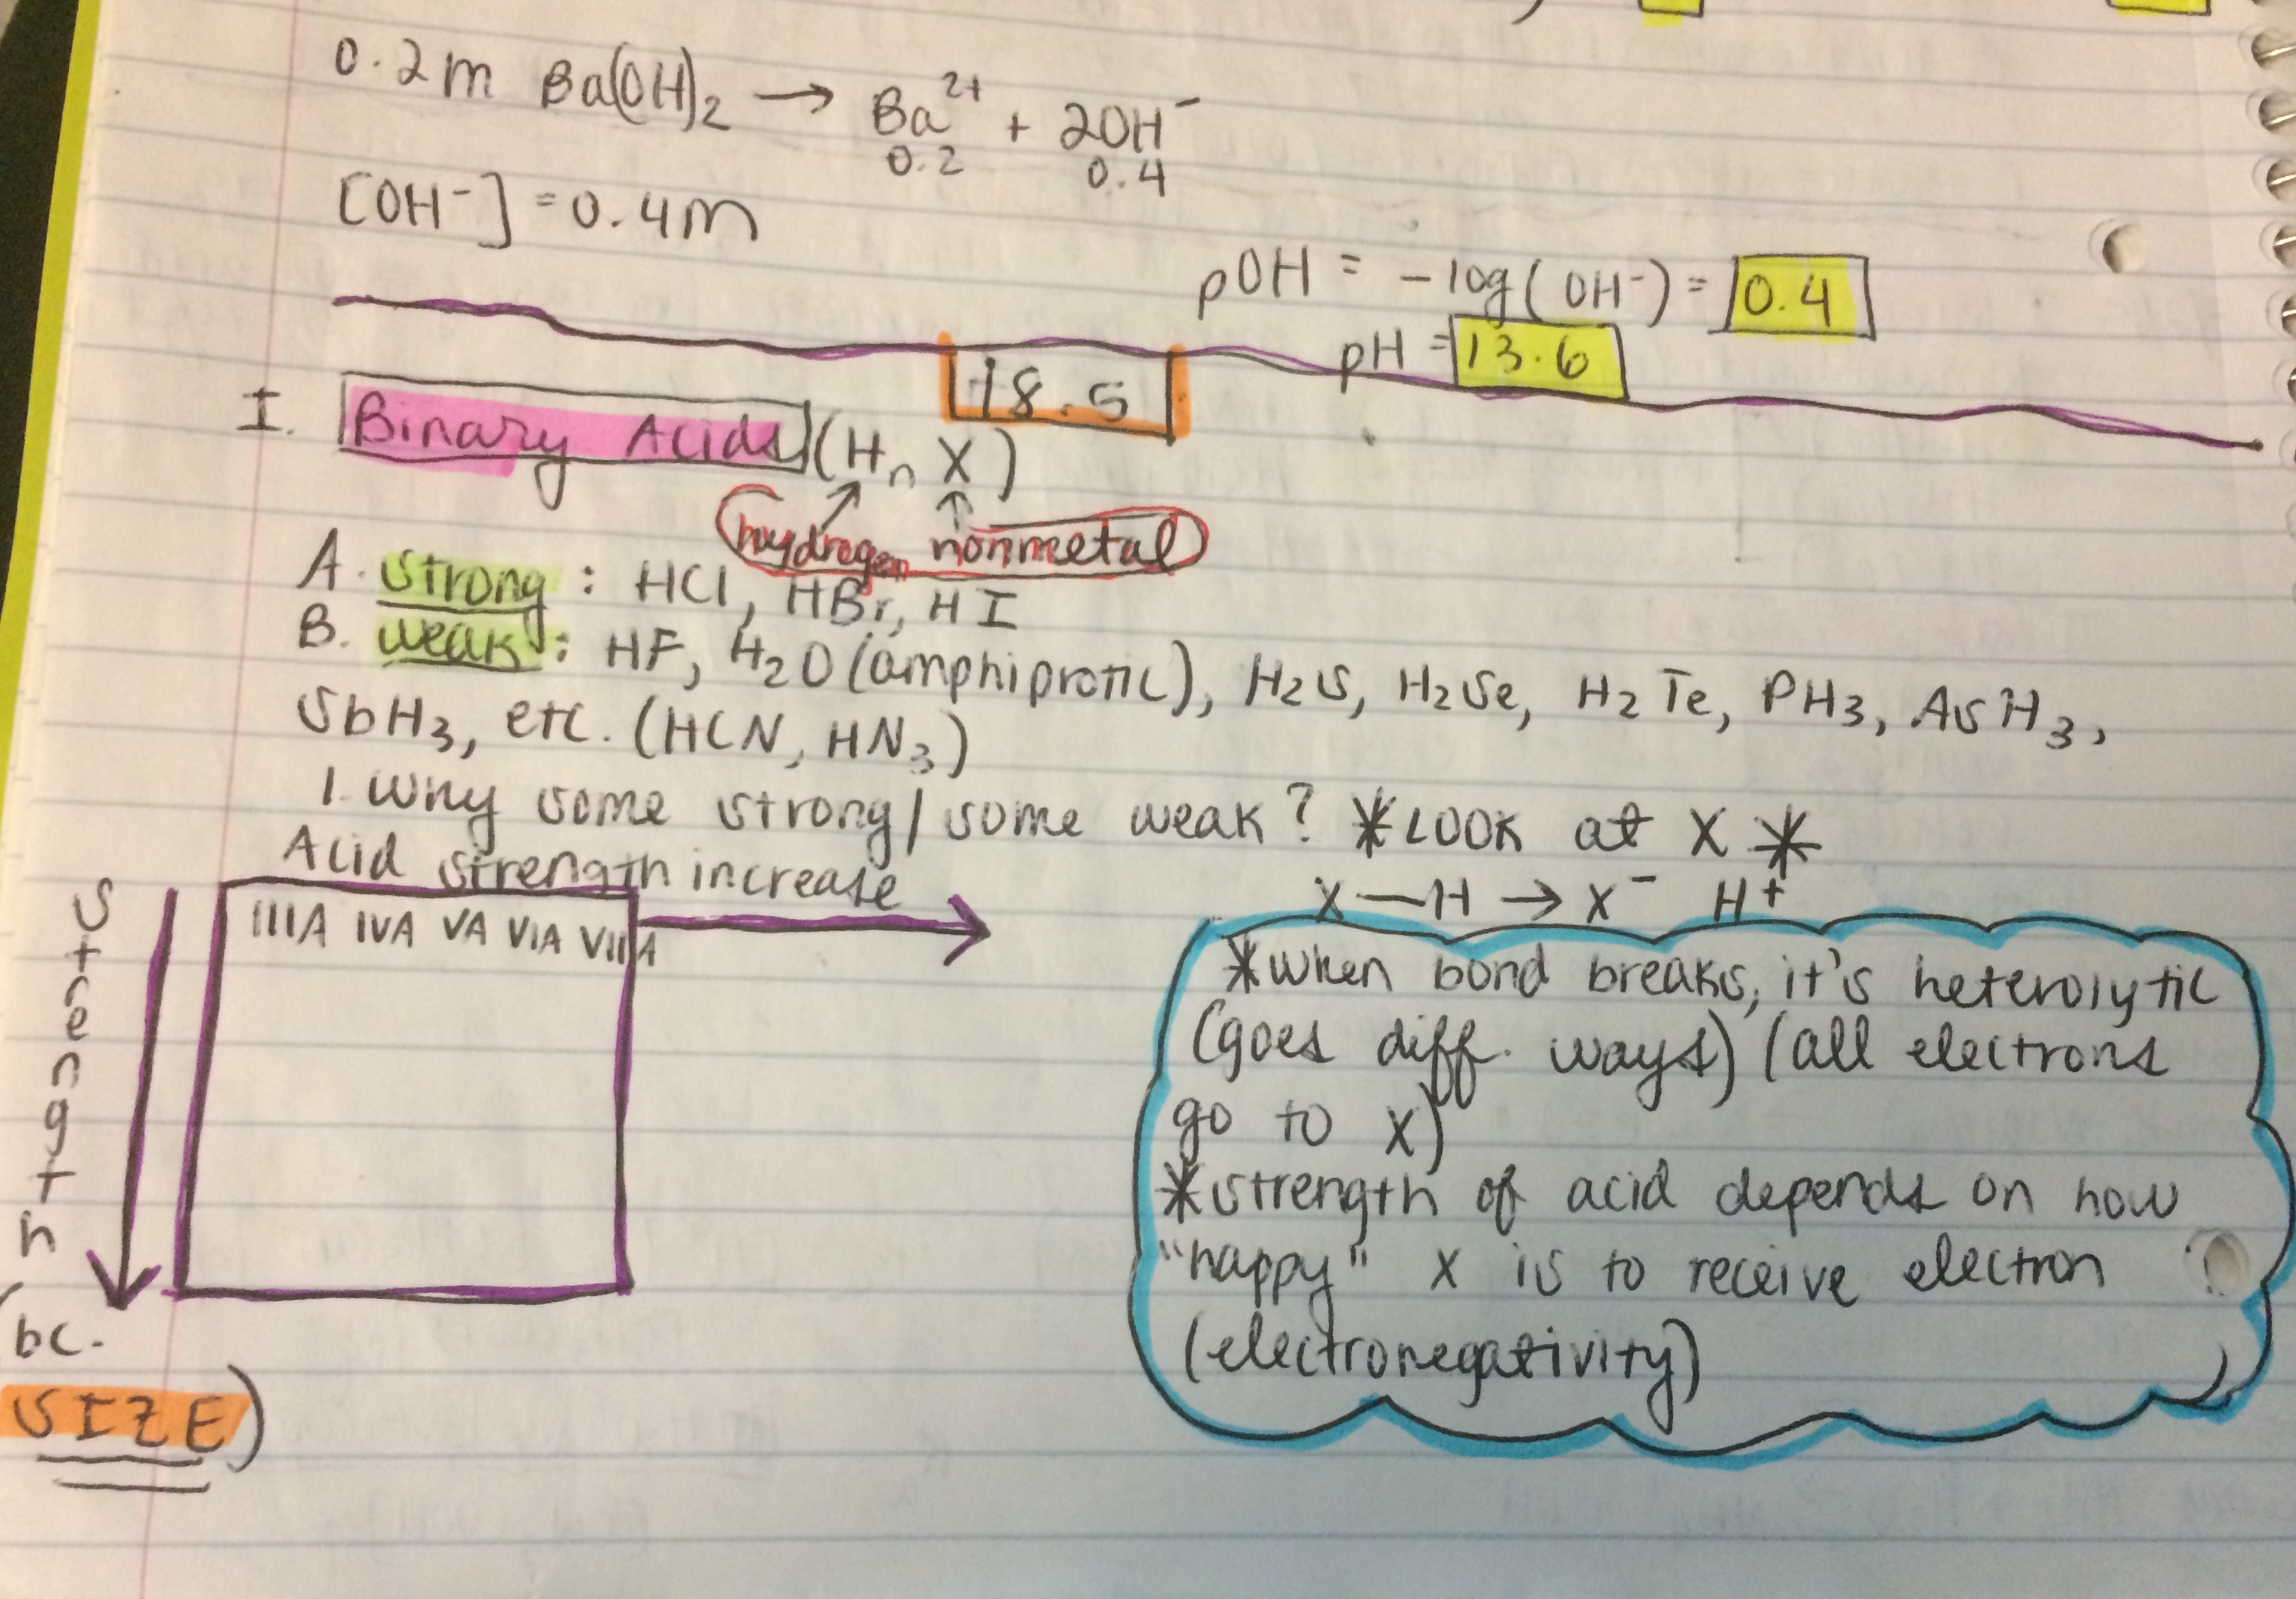 0.2m Ba(OH)₂ → Ba²⁺ + 2OH⁻
0.2 0.4
[OH⁻] = 0.4m
pOH = -log(OH⁻) = 0.4
pH = 13.6
18.5
I. Binary Acids (HₙX)
hydrogen nonmetal
A. strong: HCl, HBr, HI
B. weak: HF, H₂O (amphiprotic), H₂S, H₂Se, H₂Te, PH₃, AsH₃,
SbH₃, etc. (HCN, HN₃)
1. Why some strong/some weak? *LOOK at X*
Acid strength increase
X—H → X⁻ H⁺
IIIA IVA VA VIA VIIA
strength
(bc.
SIZE)
*when bond breaks, it's heterolytic
(goes diff. ways) (all electrons
go to X)
*strength of acid depends on how
"happy" X is to receive electron
(electronegativity)